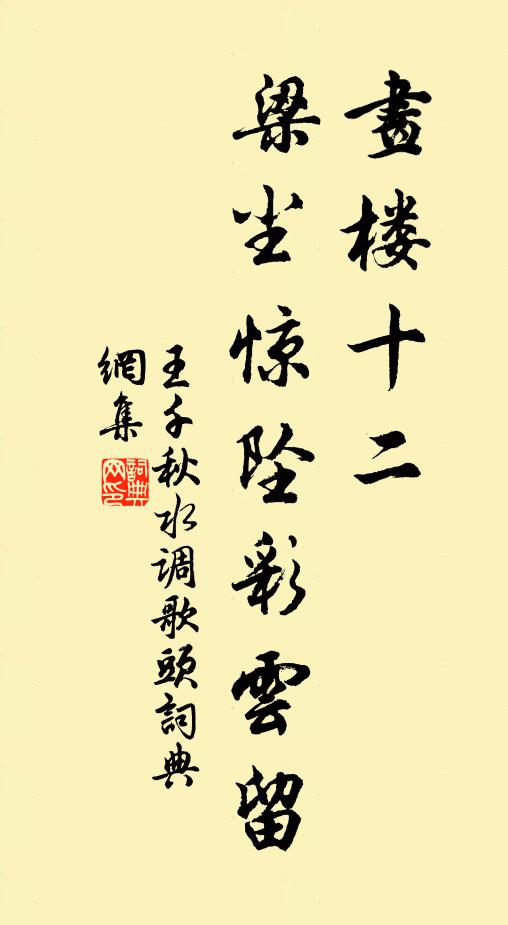 畫楼十二
梁尘惊坠彩雲留
王千秋水调歌頭詞典
網集
詞典
网印